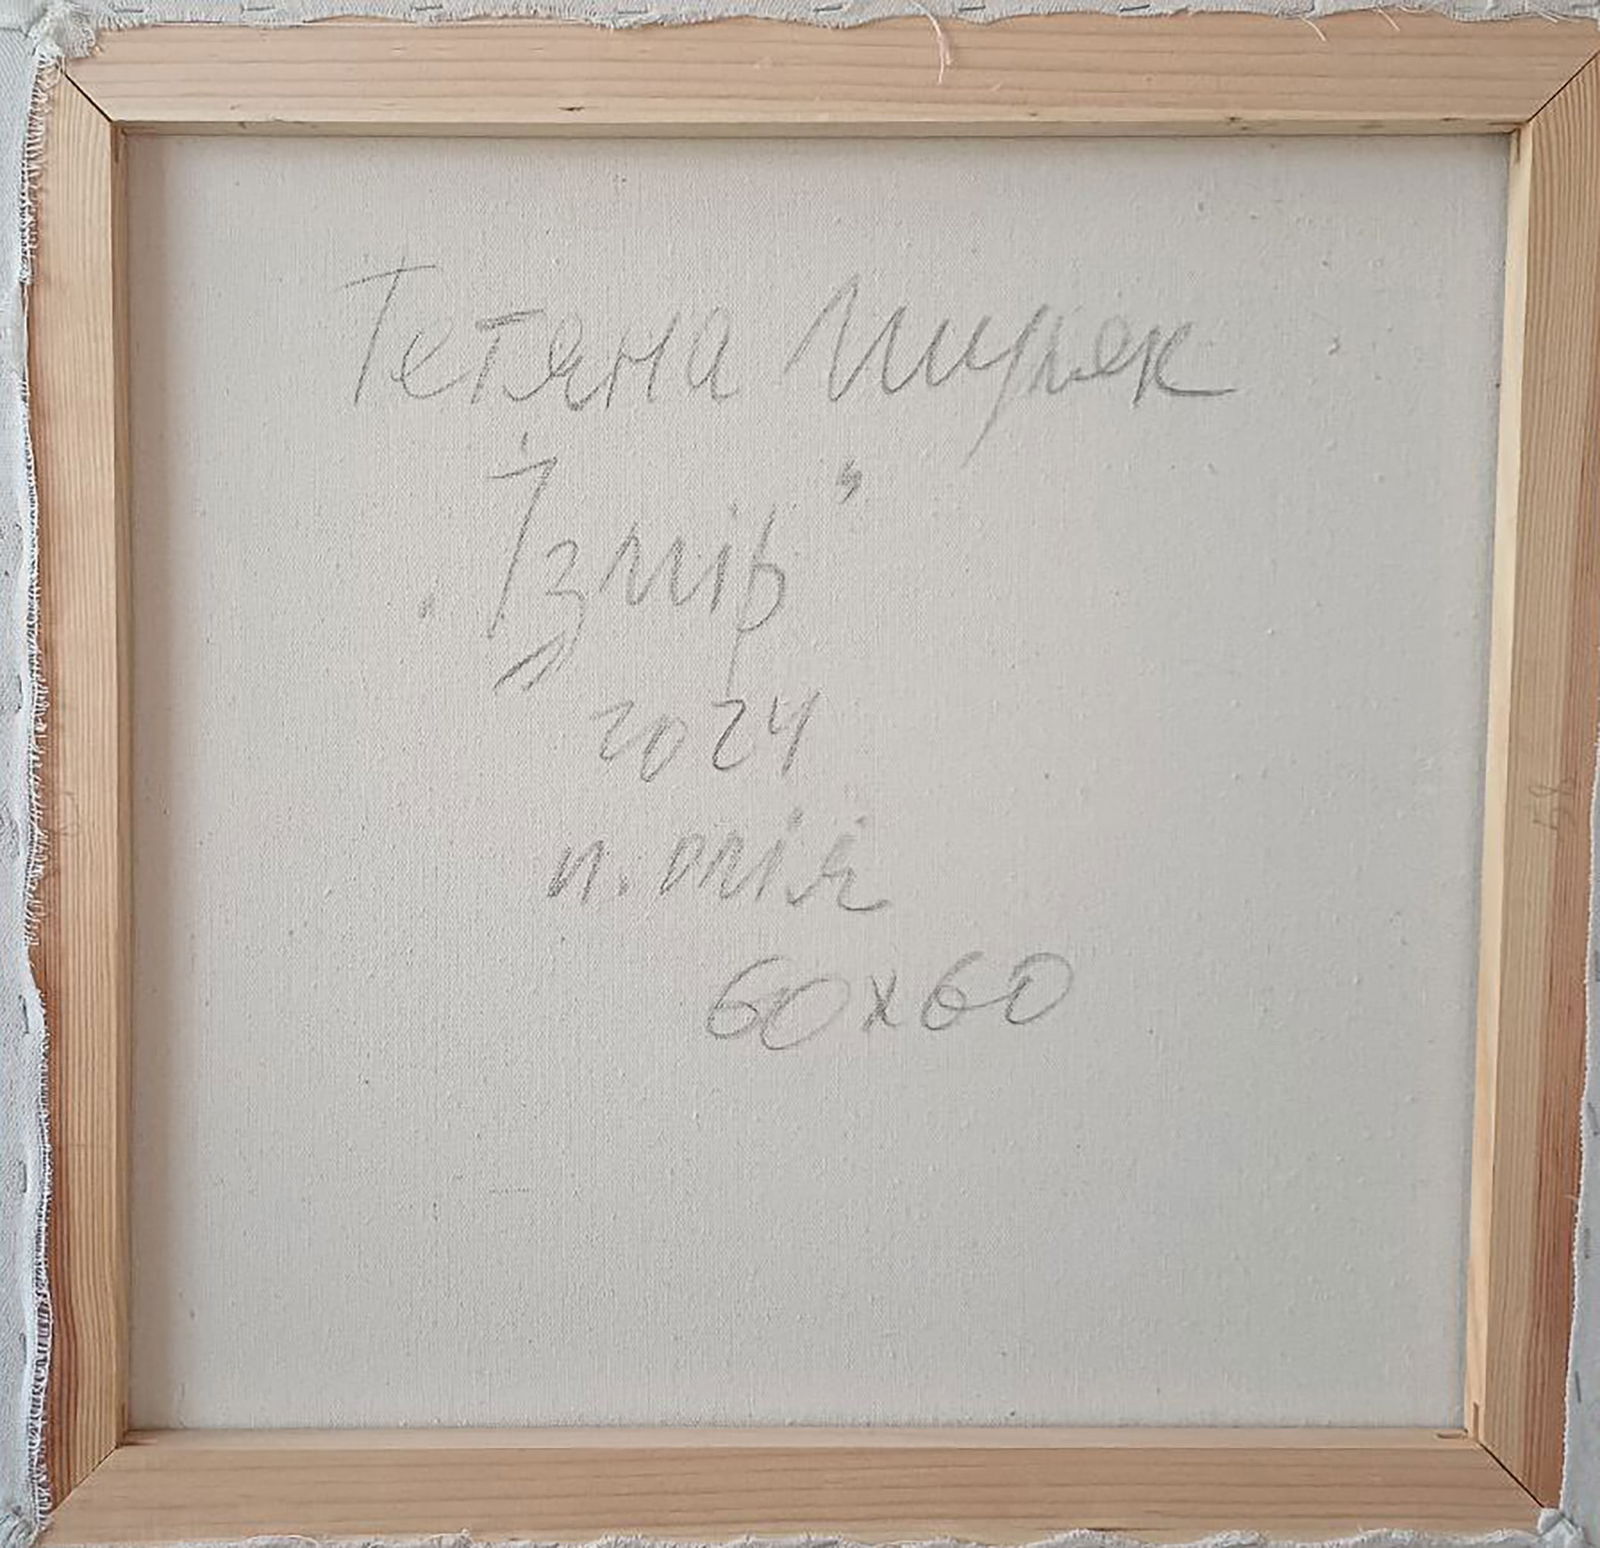 Тетяна
„Ізмір“
2024
п. олія
60х60